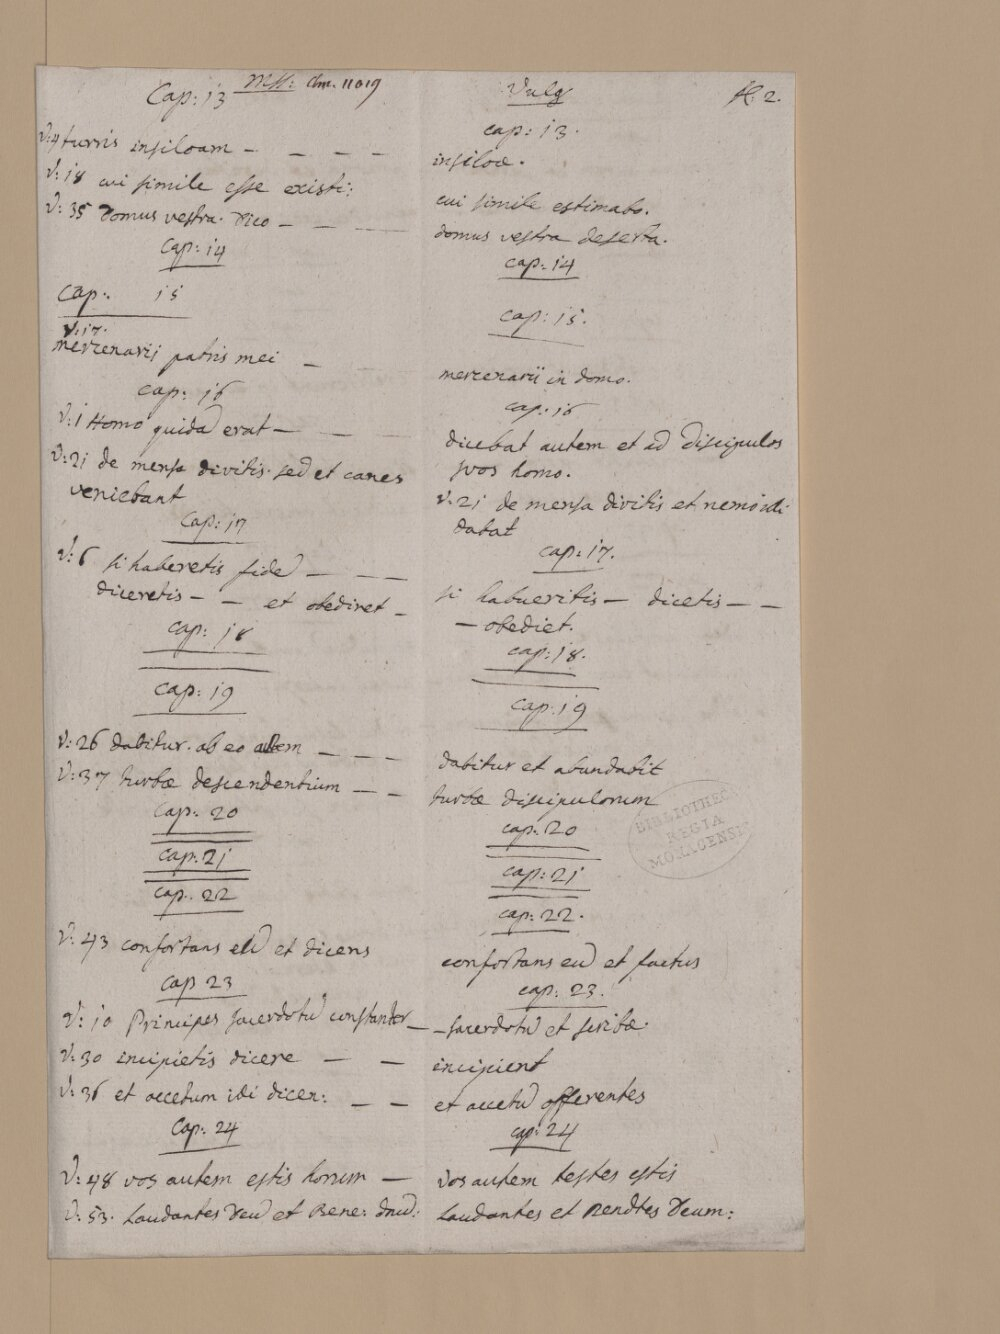 Mss: Clm. 11019
Cap: 13
V: 4 turris insiloam – – – –
V: 18 cui simile esse existi:
V: 35 domus vestra. dico – – –
Cap: 14
Cap: 15
V: 17.
mercenarij patris mei –
cap: 16
V: 1 Homo quidā erat – –
V: 21 de mensa divitis. sed et canes
veniebant
Cap: 17
V: 6 si haberetis fidē – – –
diceretis – – et obediret –
Cap: 18
Cap: 19
V: 26 dabitur. ab eo autem – – –
V: 37 turbæ descendentium – –
Cap: 20
Cap: 21
Cap. 22
V: 43 confortans eū et dicens
Cap 23
V: 10 Principes sacerdotū constanter –
V: 30 incipietis dicere – –
V: 36 et accetum ibi dicen: – –
Cap: 24
V: 48 vos autem estis horum –
V: 53. Laudantes deū et Bene: dnū:
Vulg
H. 2.
cap: 13.
in siloe.
cui simile estimabo.
domus vestra deserta.
cap: 14
cap: 15.
mercenarii in domo.
cap: 16
dicebat autem et ad discipulos
suos homo.
V. 21 de mensa divitis et nemo idi
dabat
cap: 17.
si habueritis – dicetis – –
– obediet.
cap: 18.
cap: 19
dabitur et abundabit
turbæ discipulorum
cap: 20
cap: 21
cap: 22.
confortans eū et factus
cap: 23.
– sacerdotū et scribæ.
incipient
et accetū offerentes
cap: 24
vos autem testes estis
Laudantes et Bendtes deum:
BIBLIOTHEC
REGIA
MONACENSIS